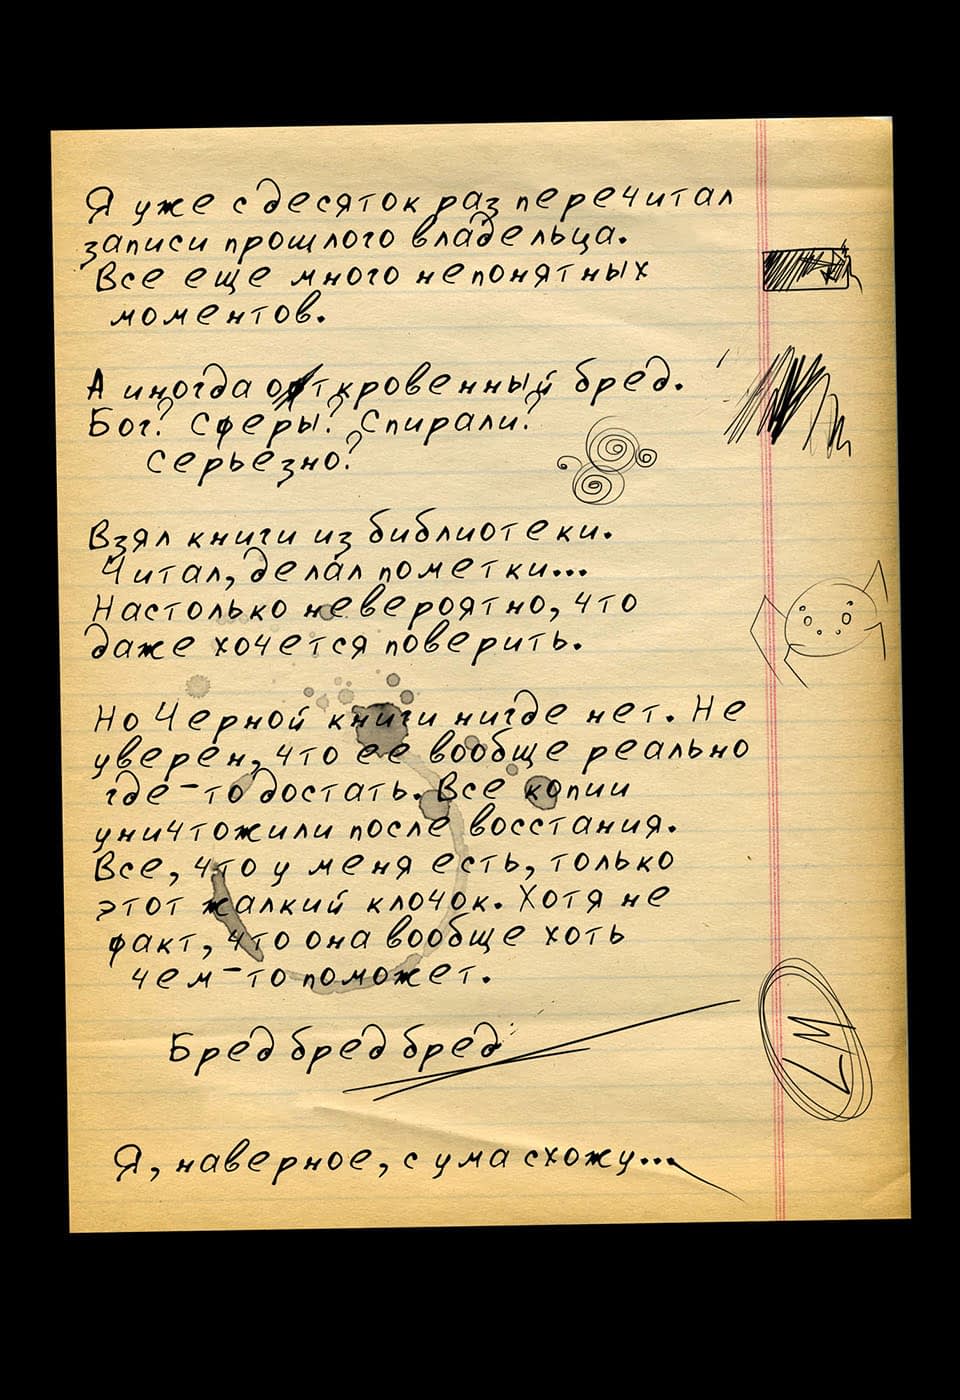 Я уже с десяток раз перечитал
записи прошлого владельца.
Все еще много непонятных
моментов.
А иногда откровенный бред.
Бог? Сферы? Спирали?
Серьезно?
Взял книги из библиотеки.
Читал, делал пометки...
Настолько невероятно, что
даже хочется поверить.
Но Черной книги нигде нет. Не
уверен, что ее вообще реально
где-то достать. Все копии
уничтожили после восстания.
Все, что у меня есть, только
этот жалкий клочок. Хотя не
факт, что она вообще хоть
чем-то поможет.
LM
Бред бред бред
Я, наверное, с ума схожу...